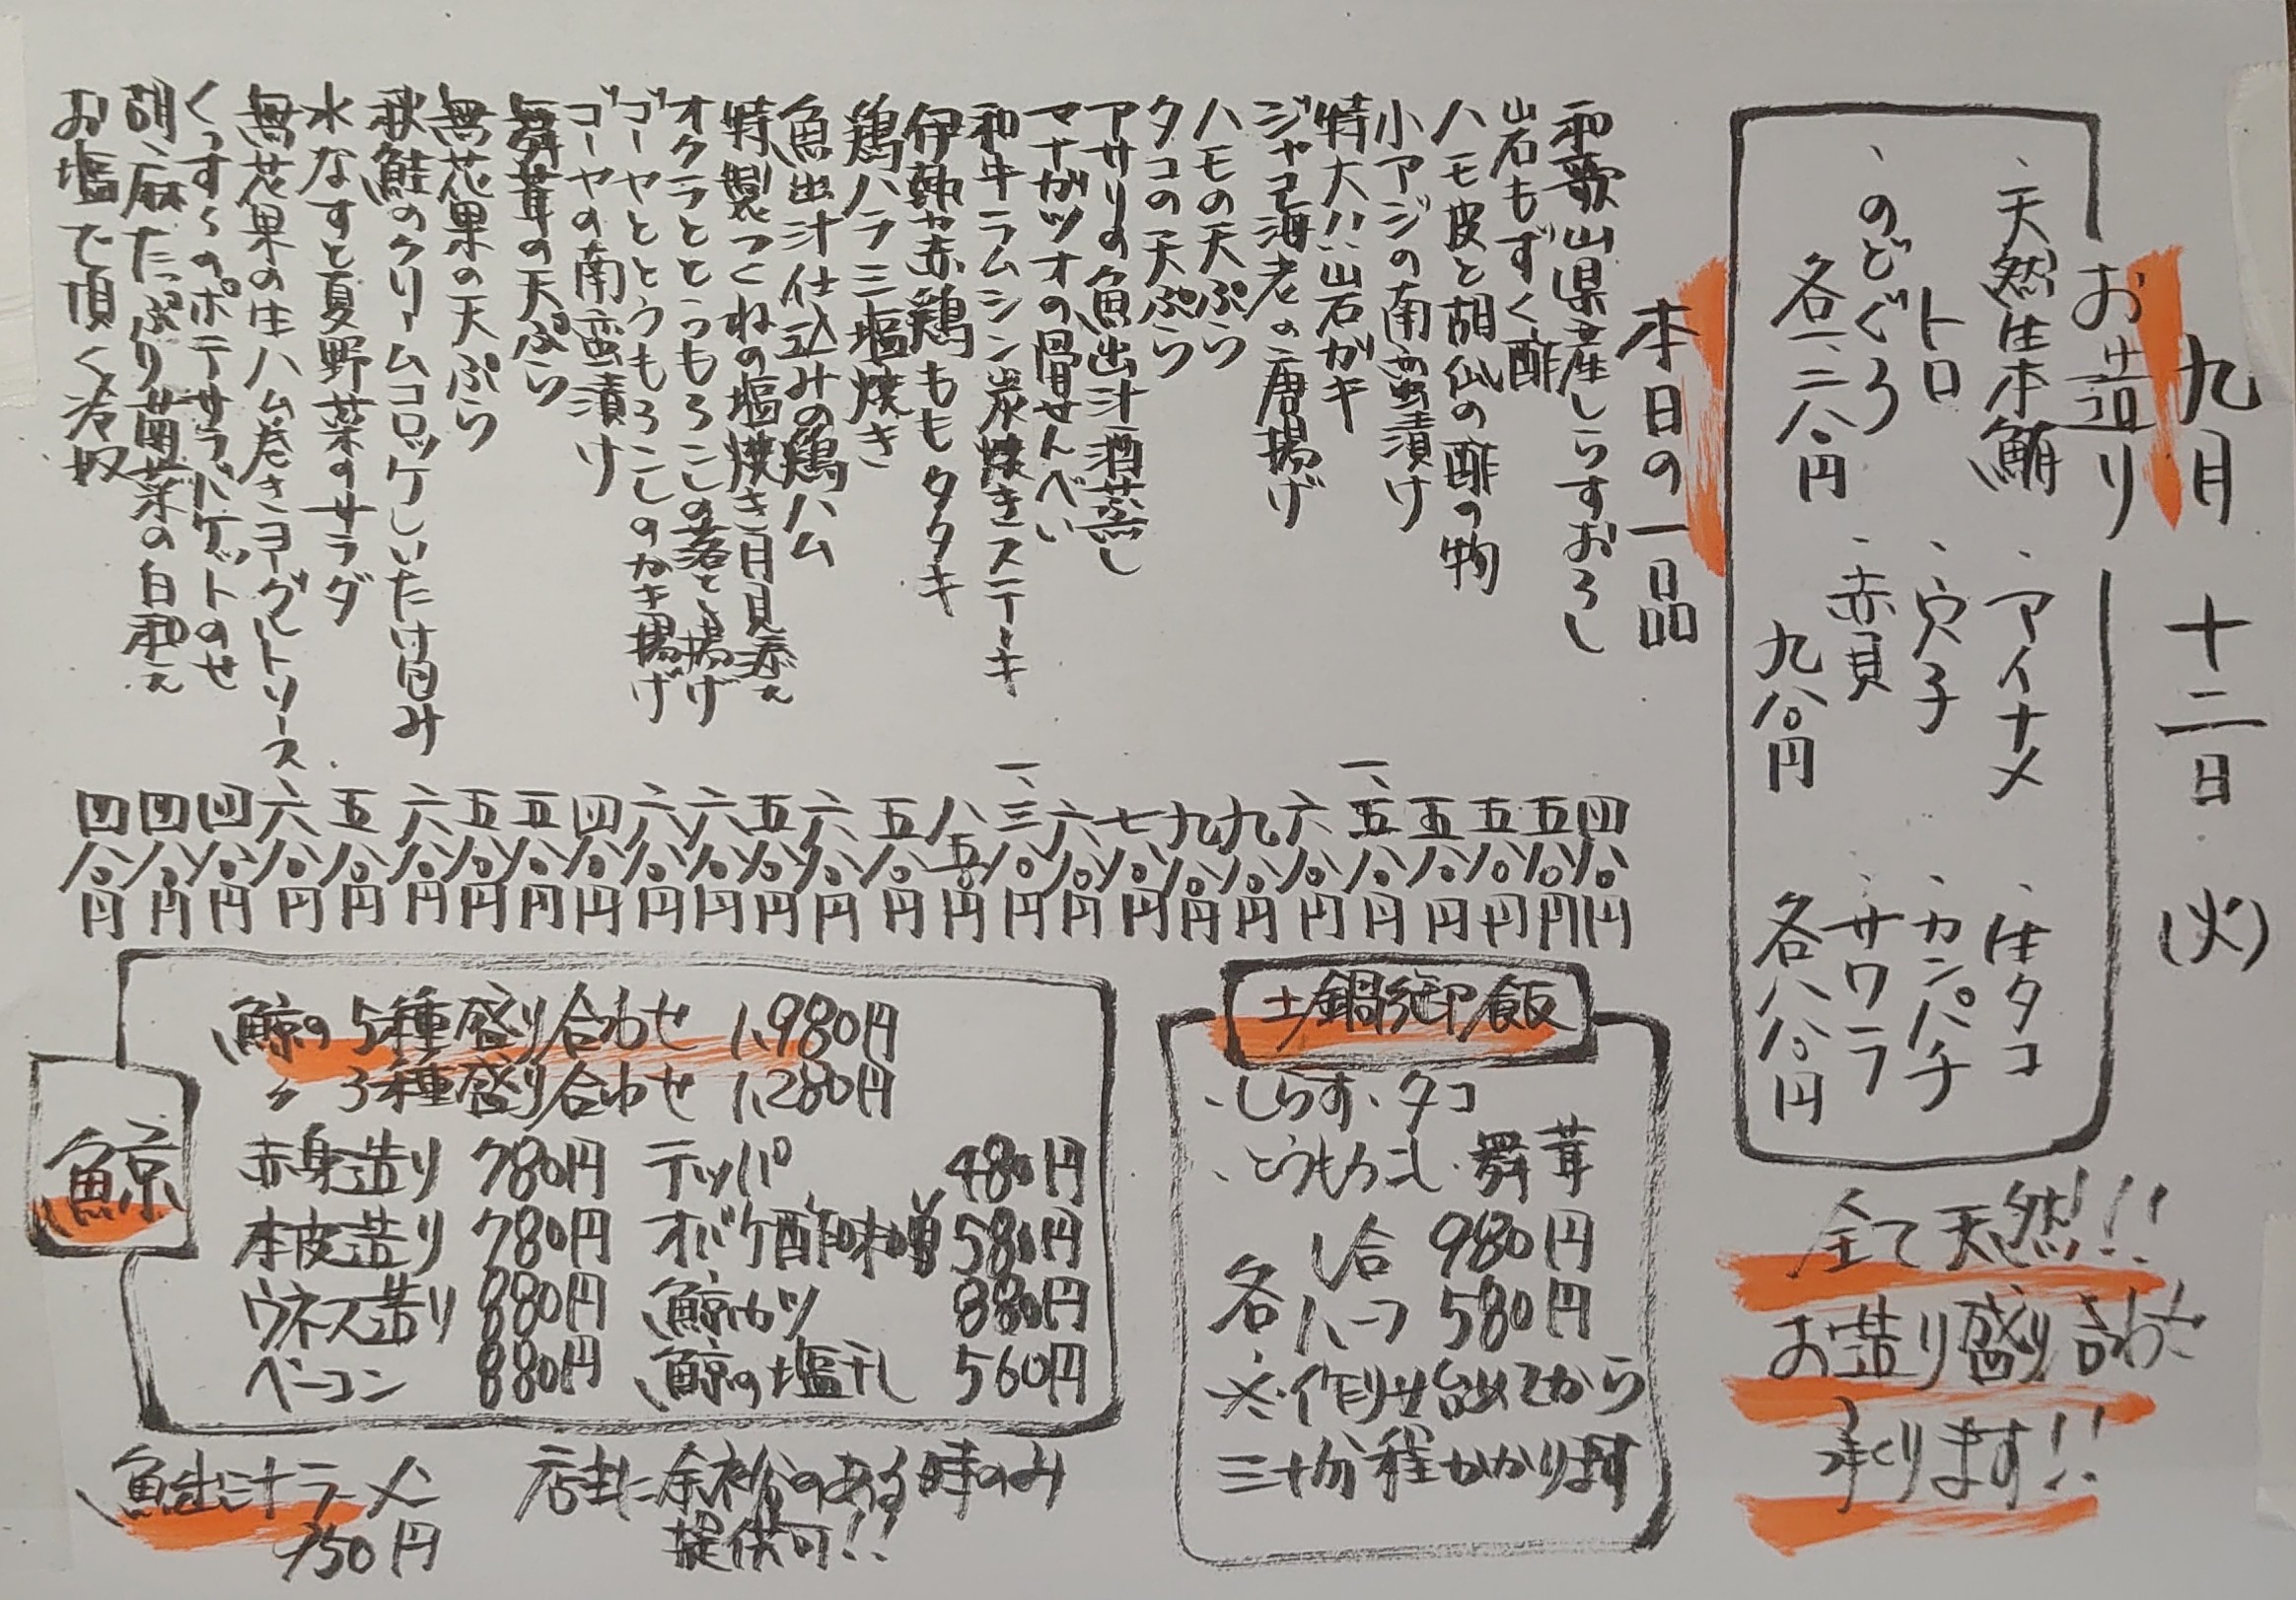 九月十二日(火)
お造り
、天然生本鮪
トロ
、のどぐろ
各一、二八〇円
、アイナメ
、穴子
、赤貝
九八〇円
、生タコ
、カンパチ
、サワラ
各八八〇円
全て天然!!
お造り盛り合わせ
承ります!!
本日の一品
和歌山県産しらすおろし 四八〇円
岩もずく酢 五八〇円
ハモ皮と胡瓜の酢の物 五八〇円
小アジの南蛮漬け 五八〇円
特大!!岩ガキ 一、五八〇円
ジャコ海老の唐揚げ 六八〇円
ハモの天ぷら 九八〇円
タコの天ぷら 九八〇円
アサリの魚出汁酒蒸し 七八〇円
マナガツオの骨せんべい 六八〇円
和牛ラムシン炭焼きステーキ 一、三八〇円
伊勢赤鶏ももタタキ 八五〇円
鶏ハラミ塩焼き 五八〇円
魚出汁仕込みの鶏ハム 六八〇円
特製つくねの塩焼き月見添え 五八〇円
オクラととうもろこしの落とし揚げ 六八〇円
ゴーヤととうもろこしのカキ揚げ 六八〇円
ゴーヤの南蛮漬け 四八〇円
舞茸の天ぷら 五八〇円
無花果の天ぷら 五八〇円
秋鮭のクリームコロッケしいたけ包み 六八〇円
水なすと夏野菜のサラダ 五八〇円
無花果の生ハム巻きヨーグルトソース 六八〇円
くっすくのポテサラバケットのせ 四八〇円
胡麻たっぷり菊菜の白和え 四八〇円
お塩で頂く冷奴 四八〇円
土鍋御飯
、しらす、タコ
、とうもろこし、舞茸
各 1合 980円
ハーフ 580円
※作り出してから
三十分程かかります
鯨
鯨の5種盛り合わせ 1,980円
〃 3種盛り合わせ 1,280円
赤身造り 780円 テッパ 480円
本皮造り 780円 オバケ酢味噌 580円
ウネス造り 880円 鯨カツ 880円
ベーコン 880円 鯨の塩干し 560円
魚出汁ラーメン
750円
店主に余裕のある時のみ
提供可!!